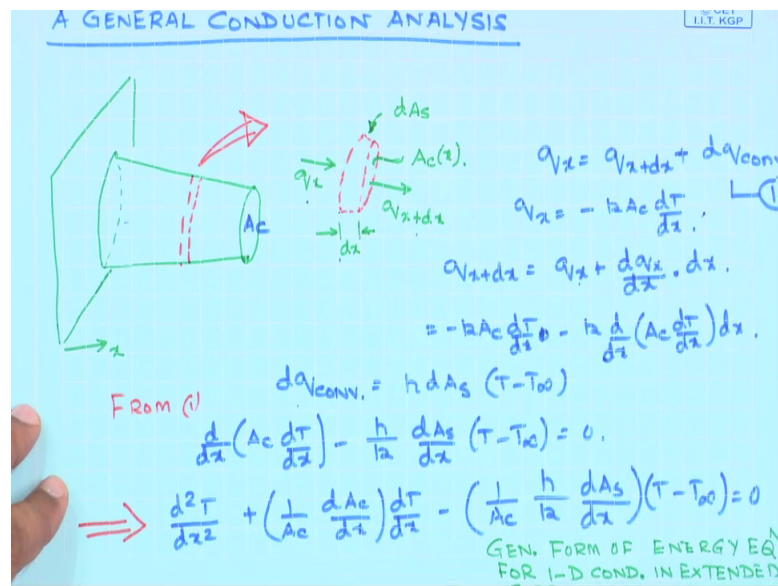 A GENERAL CONDUCTION ANALYSIS
I.I.T. KGP
dAs
Ac(x).
qx
qx+dx
dx
Ac
x
qx = qx+dx + dqconv
(1
qx = - kAc dT/dx.
qx+dx = qx + dqx/dx . dx.
= -kAc dT/dx - k d/dx (Ac dT/dx) dx.
dqconv. = h dAs (T-T∞)
FROM (1)
d/dx (Ac dT/dx) - h/k dAs/dx (T-T∞) = 0.
⇒ d²T/dx² + (1/Ac dAc/dx) dT/dx - (1/Ac h/k dAs/dx)(T-T∞)=0
GEN. FORM OF ENERGY EQN
FOR 1-D COND. IN EXTENDED